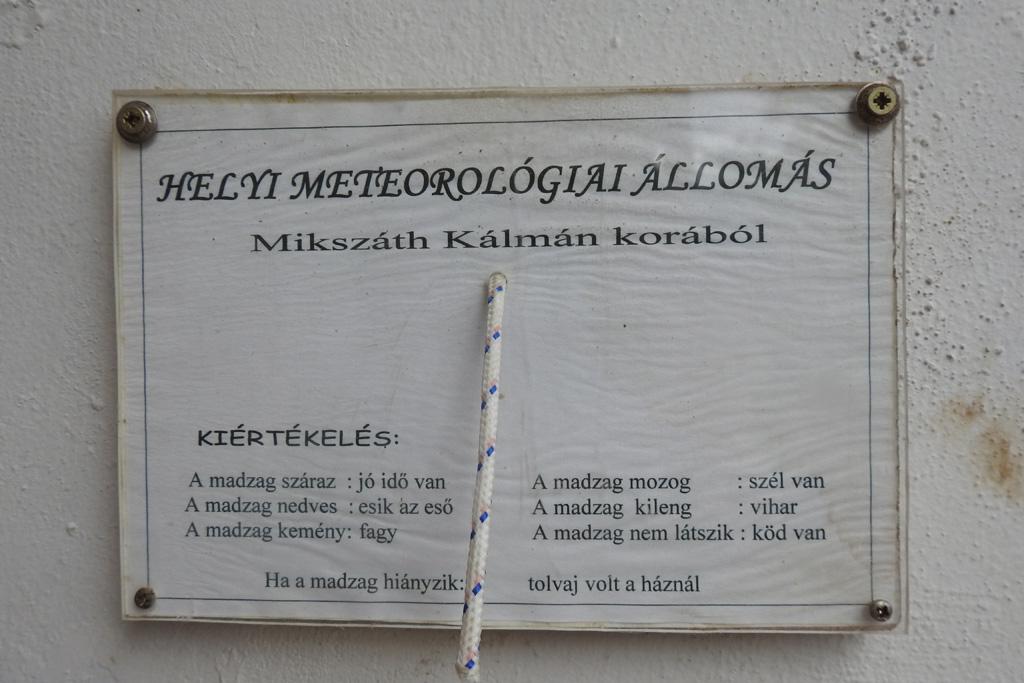 HELYI METEOROLÓGIAI ÁLLOMÁS
Mikszáth Kálmán korából
KIÉRTÉKELÉS:
A madzag száraz : jó idő van
A madzag nedves : esik az eső
A madzag kemény: fagy
A madzag mozog : szél van
A madzag kileng : vihar
A madzag nem látszik : köd van
Ha a madzag hiányzik: tolvaj volt a háznál